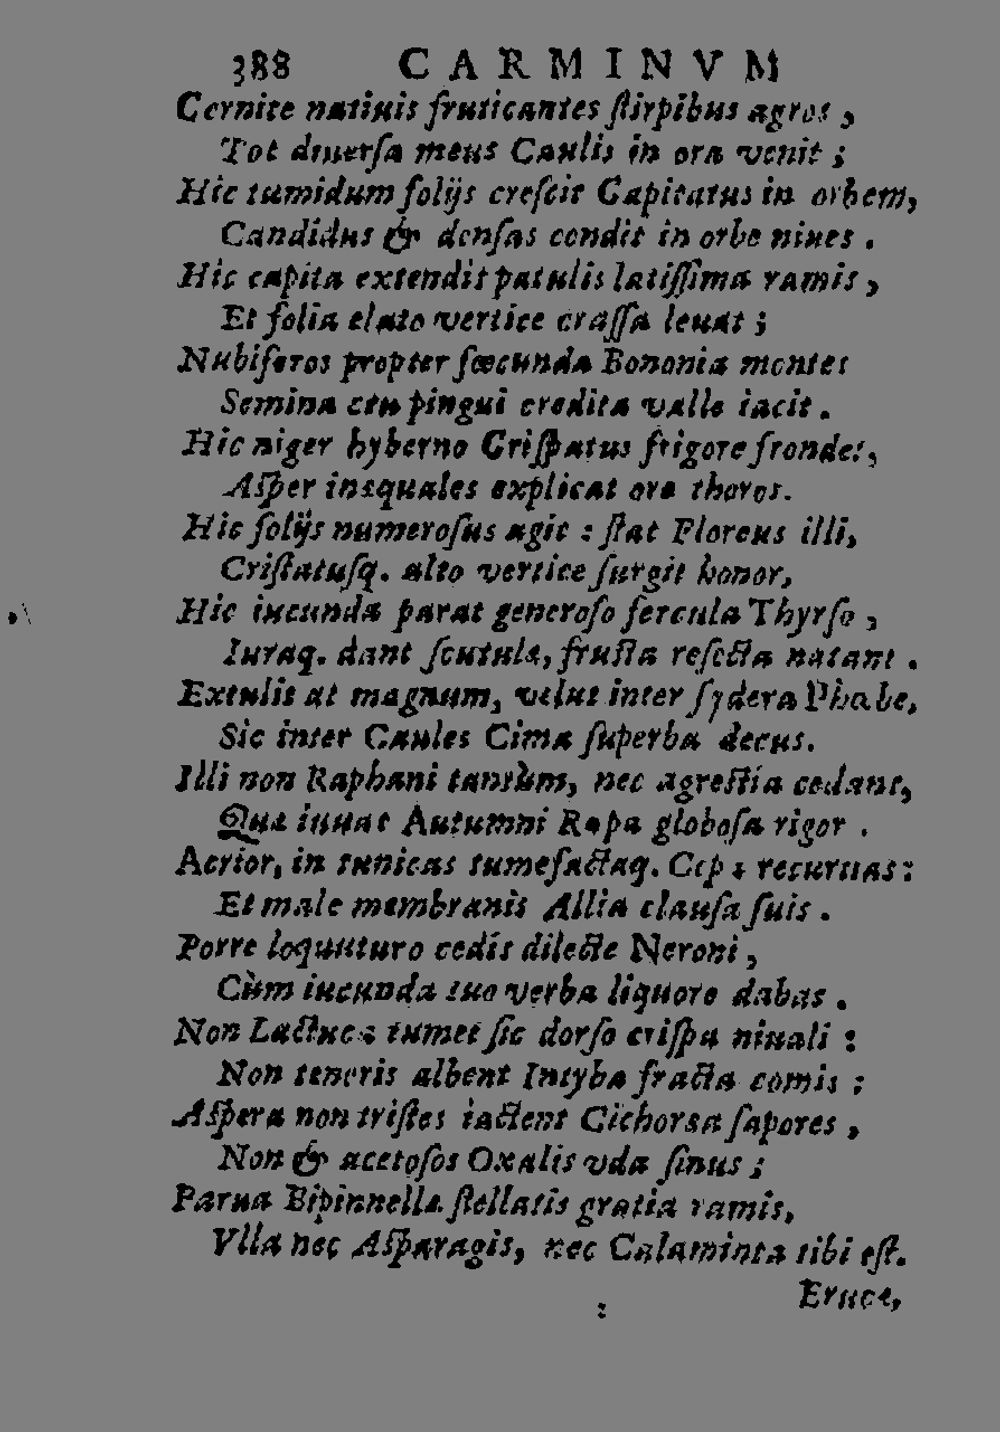 388 CARMINVM
Cernite natiuis fruticantes ſtirpibus agros,
Tot diuerſa meus Caulis in ora venit;
Hic tumidum folijs creſcit Capitatus in orbem,
Candidus & denſas condit in orbe niues.
Hic capita extendit patulis latiſſima ramis,
Et folia elato vertice craſſa leuat;
Nubiferos propter fœcunda Bononia montes
Semina ceu pingui credita valle iacit.
Hic niger hyberno Criſpatus frigore frondes,
Aſper inæquales explicat ore thoros.
Hic folijs numeroſus agit: ſtat Floreus illi,
Criſtatuſq. alto vertice ſurgit honor,
Hic iucunda parat generoſo fercula Thyrſo,
Iuraq. dant ſcutulæ, fruſta reſecta natant.
Extulit at magnum, velut inter ſydera Phœbe,
Sic inter Caules Cima ſuperba decus.
Illi non Raphani tantùm, nec agreſtia cedant,
Quæ iuuat Autumni Rapa globoſa rigor.
Acrior, in tunicas tumefactaq. Cepa recuruas:
Et male membranis Allia clauſa ſuis.
Porre loquuturo cedis dilecte Neroni,
Cùm iucunda tuo verba liquore dabas.
Non Lactuca tumet ſic dorſo criſpa niuali:
Non teneris albent Intyba fracta comis:
Aſpera non triſtes iactent Cichorea ſapores,
Non & acetoſos Oxalis vda ſinus;
Parua Bipinnellæ ſtellatis gratia ramis,
Vlla nec Aſparagis, nec Calaminta tibi eſt.
Erucæ,